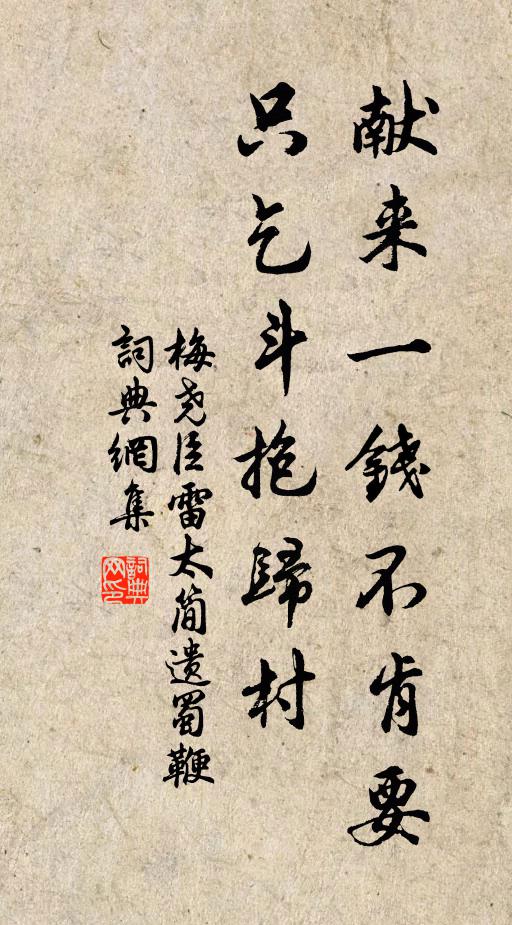 献来一錢不肯要
只乞斗抱歸村
梅尧臣雷太简遗蜀鞭
詞典網集
詞典
网印